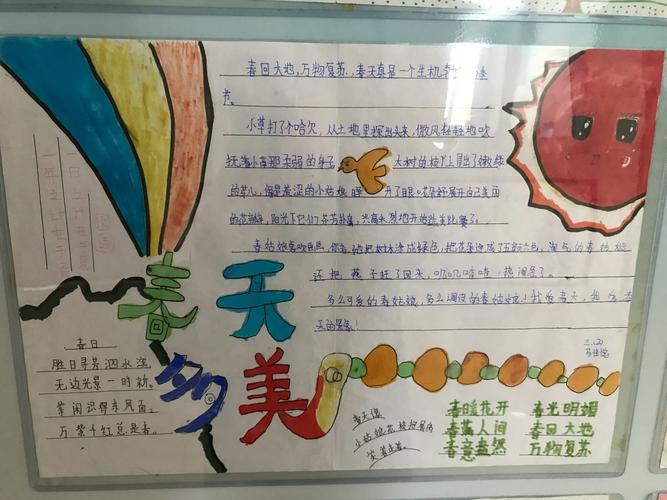 春回大地,万物复苏,春天真是一个生机
节。
小草打了个哈欠,从土地里探出头来,微风轻轻地吹
抚着小苗那柔弱的身子 大树的枝丫上冒出了嫩绿
的芽心,像是羞涩的小姑娘 开了眼。花朵舒展开自己美丽
的花瓣,阳光下它们 兴高采烈地开始选美比赛了。
春姑娘喜欢 把树木涂成绿色,把花朵染成了五颜六色,淘气的春姑娘
还把 子赶了回来,叽叽喳喳,热闹 了。
多么可爱的春姑娘,多么调皮的春姑娘!我爱春天,
天的景象!
三.
一年之计在于春
一日之计在于晨
春天多美
春日
胜日寻芳泗水滨,
无边光景一时新。
等闲识得东风面,
万紫千红总是春。
春天像
小姑娘花枝招展的
笑着走着。
春暖花开 春光明媚
春满人间 春回大地
春意盎然 万物复苏